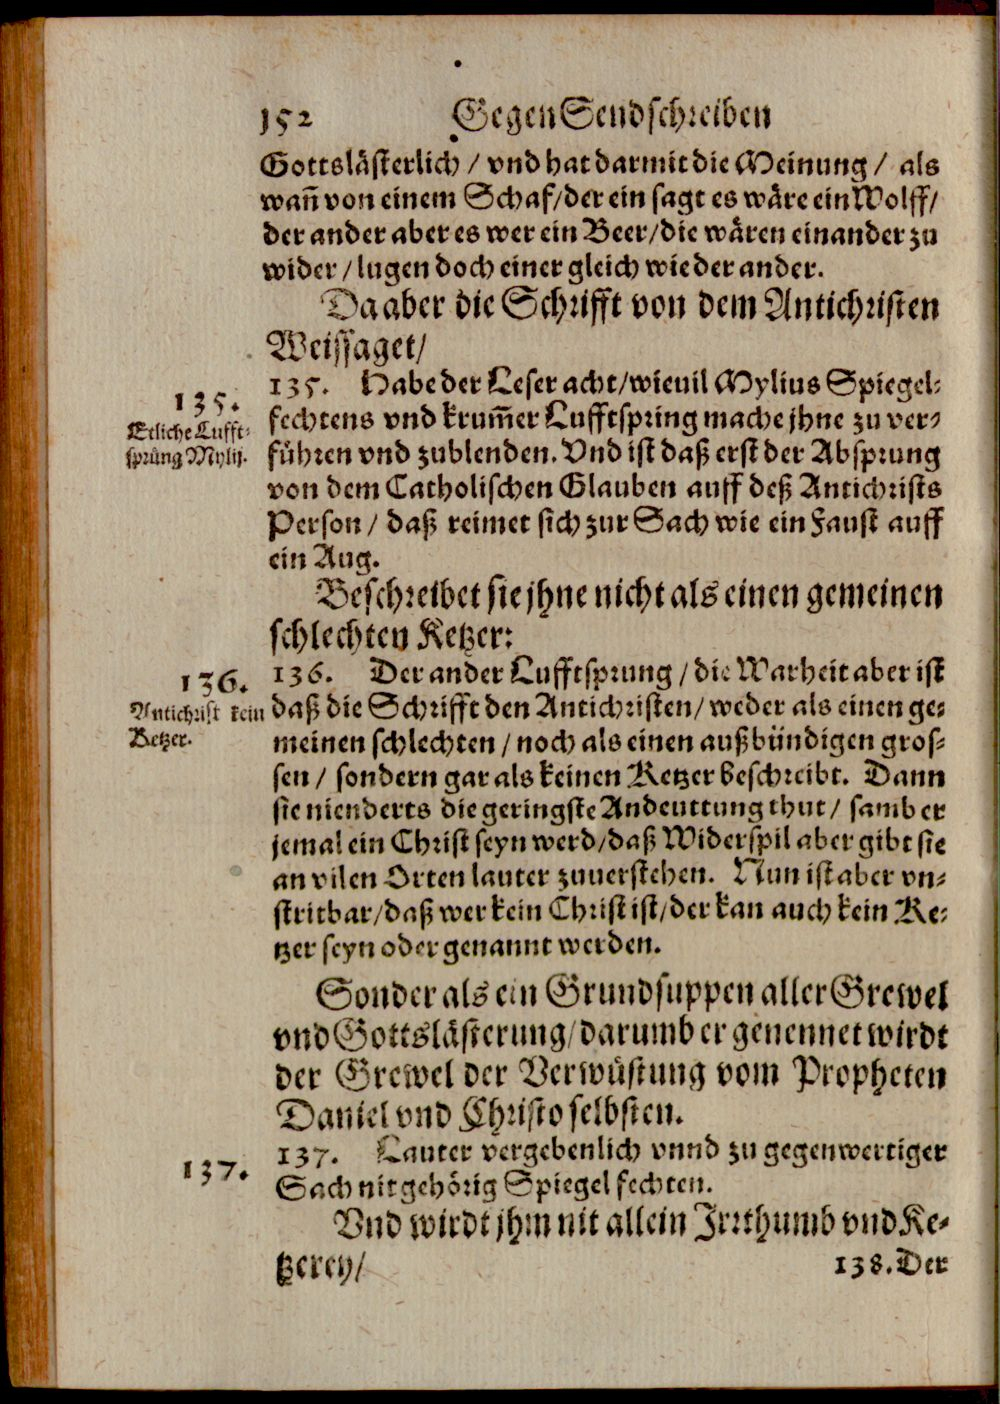 152 Gegen Sendschreiben
Gottslåsterlich / vnd hat darmit die Meinung / als
wañ von einem Schaf/der ein sagt es wåre ein Wolff/
der ander aber es wer ein Beer/die wåren einander zu
wider / lugen doch einer gleich wie der ander.
Da aber die Schrifft von dem Antichristen
Weissaget/
135.
Etliche Lufft-
sprůng Mylij.
135. Habe der Leser acht/wieuil Mylius Spiegel-
fechtens vnd krum̃er Lufftspring mache jhne zu ver-
fůhren vnd zublenden. Vnd ist daß erst der Absprung
von dem Catholischen Glauben auff deß Antichrists
Person / daß reimet sich zur Sach wie ein Faust auff
ein Aug.
Beschreibet sie jhne nicht als einen gemeinen
schlechten Ketzer:
136.
Antichrist kein
Ketzer.
136. Der ander Lufftsprung / die Warheit aber ist
daß die Schrifft den Antichristen/ weder als einen ge-
meinen schlechten / noch als einen außbündigen gros-
sen / sondern gar als keinen Ketzer beschreibt. Dann
sie nienderts die geringste Andeuttung thut / samb er
jemal ein Christ seyn werd/daß Widerspil aber gibt sie
an vilen Orten lauter zuuerstehen. Nun ist aber vn-
stritbar/daß wer kein Christ ist/der kan auch kein Ke-
tzer seyn oder genannt werden.
Sonder als ein Grundsuppen aller Grewel
vnd Gottslåsterung/darumb er genennet wirdt
der Grewel der Verwůstung vom Propheten
Daniel vnd Christo selbsten.
137.
137. Lauter vergebenlich vnnd zu gegenwertiger
Sach nit gehőrig Spiegel fechten.
Vnd wirdt jhm nit allein Irrthumb vnd Ke-
tzerey/
138. Der